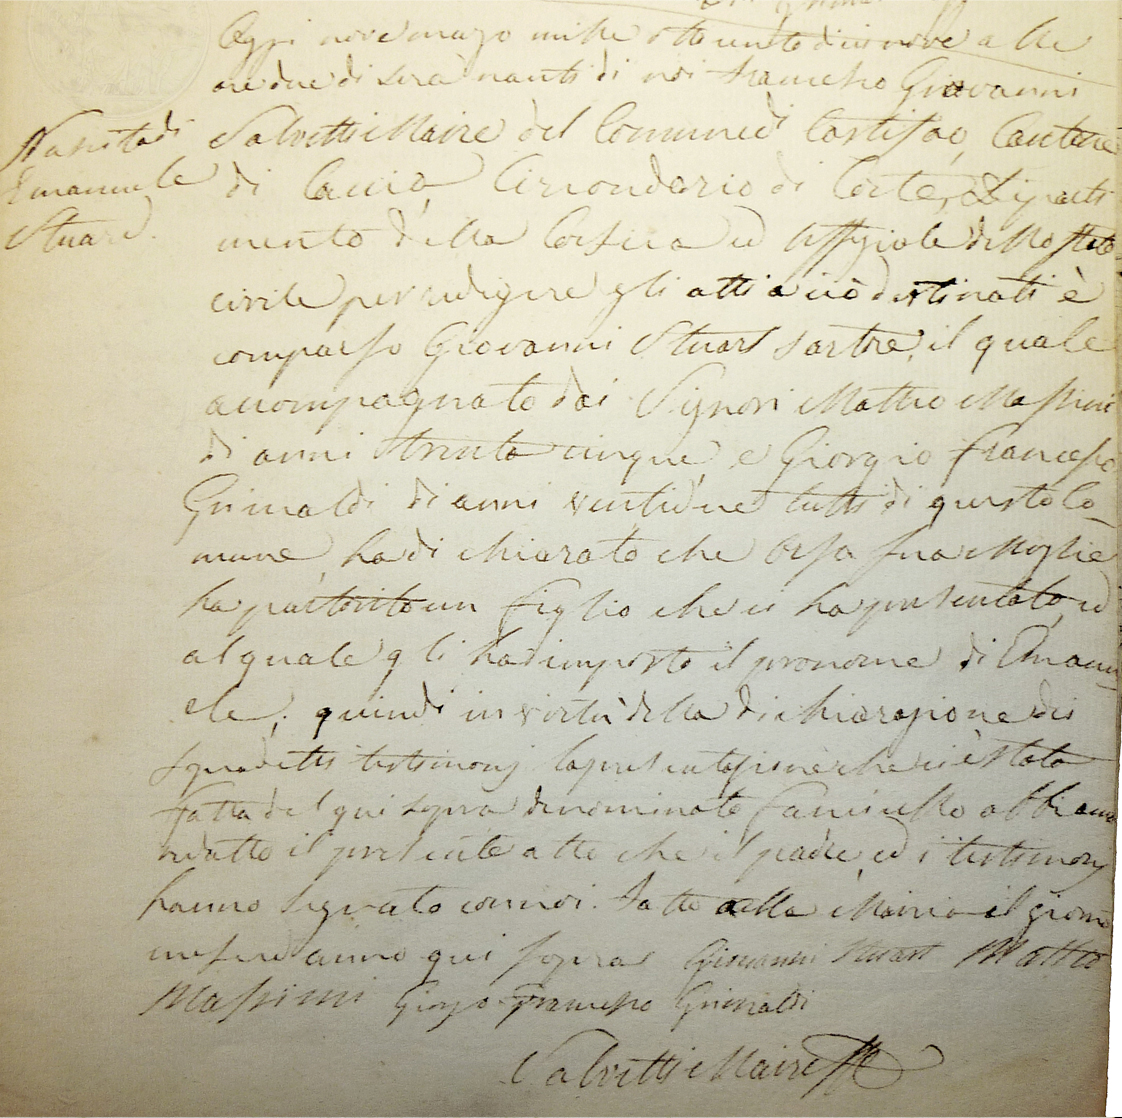 Oggi nove marzo mille ottocento diecinove alle
ore due di sera nanti di noi Francesco Giovanni
Nascita di
Emanuele
Stuard.
Salvetti Maire del Comune di Castifao, Cantone
di Caccia, Circondario di Corte, Diparti
mento della Corsica ed Uffiziale dello stato
civile per redigere gli atti a ciò destinati è
comparso Giovanni Stuart sartre, il quale
accompagnato dai Signori Matteo Massimi
di anni trenta cinque e Giorgio Francesco
Grimaldi di anni ventidue tutti di questo Co-
mune, ha dichiarato che Orsa sua Moglie
ha partorito un figlio che ci ha presentato, ed
al quale gli ha imposto il pronome di Emanu-
ele; quindi in virtù della dichiarazione dei
sopradetti testimonj la presentazione che ci è stata
fatta del qui sopra denominato fanciullo abbiamo
redatto il presente atto che il padre, ed i testimonj
hanno segnato con noi. Fatto alla Mairia il giorno
mese ed anno qui sopra Giovanni Stuart Matteo
Massimi Giorgo Francesco Grimaldi
Salvetti Maire